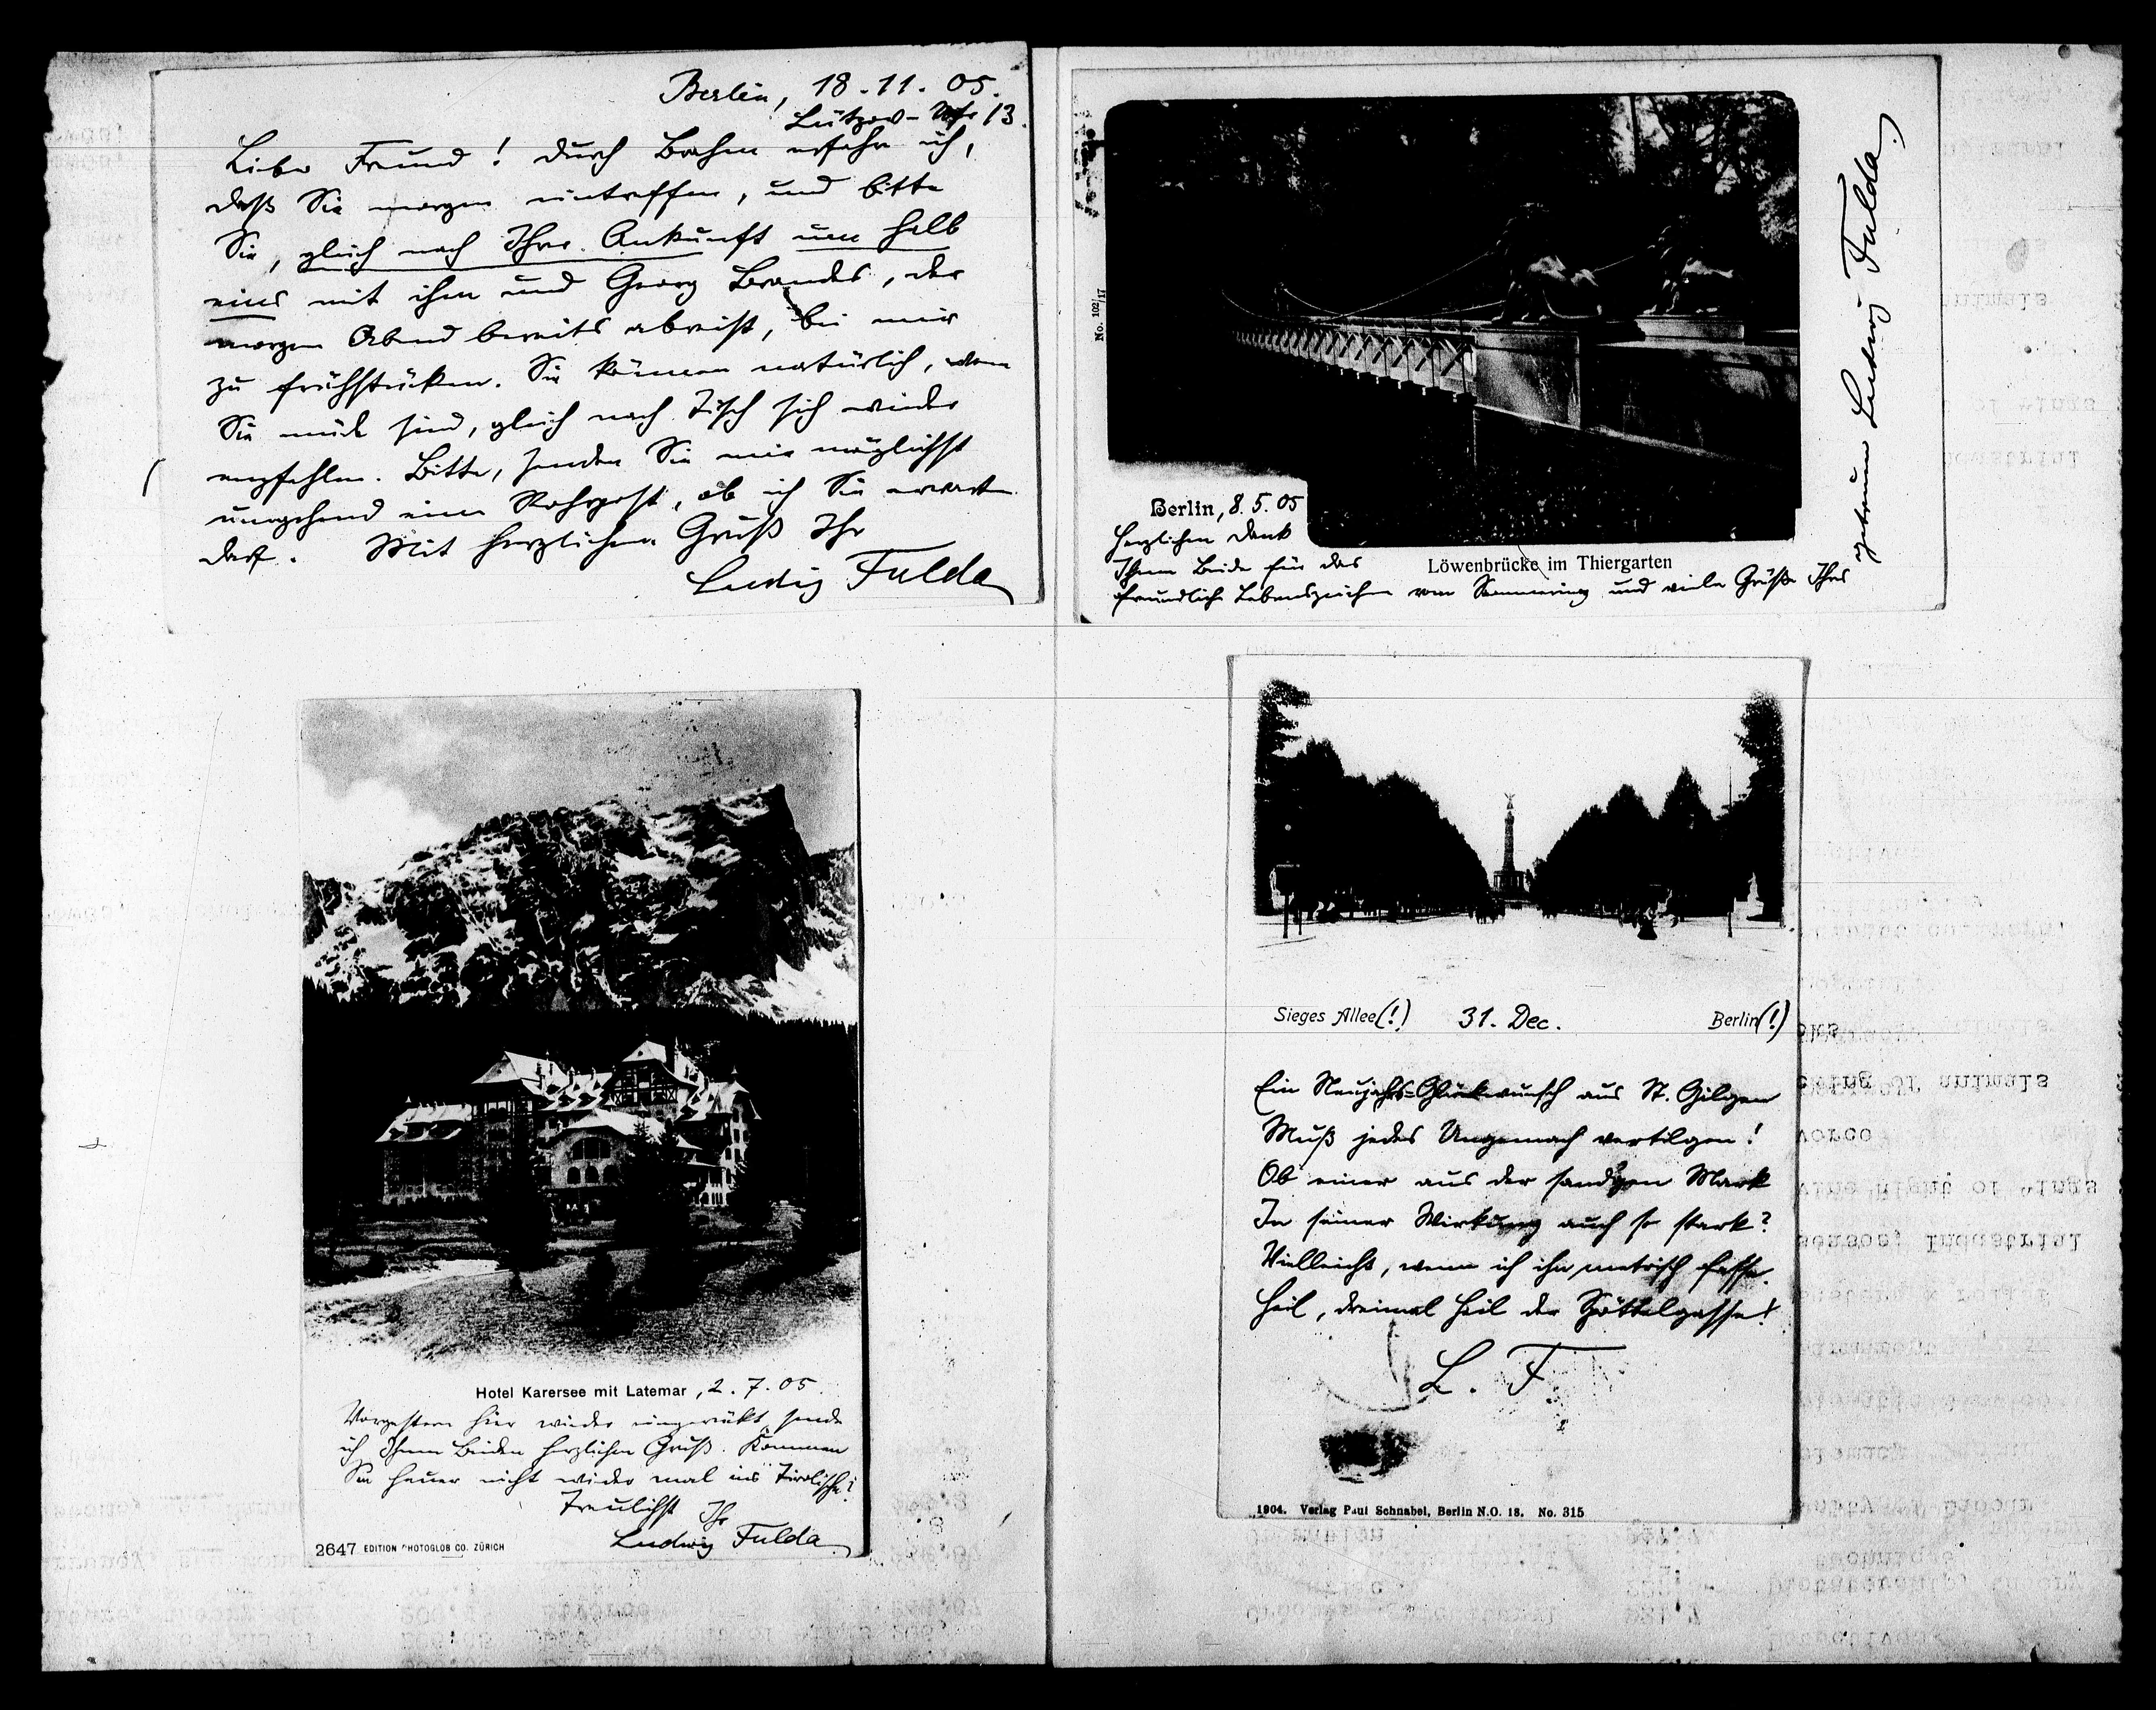 Berlin, 18.11.05.
Lützow-Ufer 13.
Lieber Freund! Durch Brahm erfahre ich,
daß Sie morgen eintreffen, und bitte
Sie, gleich nach Ihrer Ankunft um halb
eins mit ihm und Georg Brandes, der
morgen Abend bereits abreist, bei mir
zu frühstücken. Sie können natürlich, wenn
Sie müde sind, gleich nach Tisch sich wieder
empfehlen. Bitte, senden Sie mir möglichst
umgehend eine Rohrpost, ob ich Sie erwarten
darf. Mit herzlichem Gruß Ihr
Ludwig Fulda
No. 102/17
Berlin, 8.5.05
Herzlichen Dank
Ihnen Beiden für das
Löwenbrücke im Thiergarten
freundliche Lebenszeichen vom Semmering und viele Grüße Ihres
getreuen Ludwig Fulda
Hotel Karersee mit Latemar, 2.7.05.
Vorgestern hier wieder eingerückt, sende
ich Ihnen Beiden herzlichen Gruß. Kommen
Sie heuer nicht wieder mal ins Tirolische?
Treulichst Ihr
Ludwig Fulda
2647 EDITION PHOTOGLOB CO. ZÜRICH
Sieges Allee(!) 31. Dec. Berlin(!)
Ein Neujahrs-Glückwunsch aus St. Gilgen
Muß jedes Ungemach vertilgen!
Ob einer aus der sandigen Mark
In seiner Wirkung auch so stark?
Vielleicht, wenn ich ihn metrisch fasse.
Heil, dreimal Heil der Spöttelgasse!
L. F.
1904. Verlag Paul Schnabel, Berlin N.O. 18. No. 315